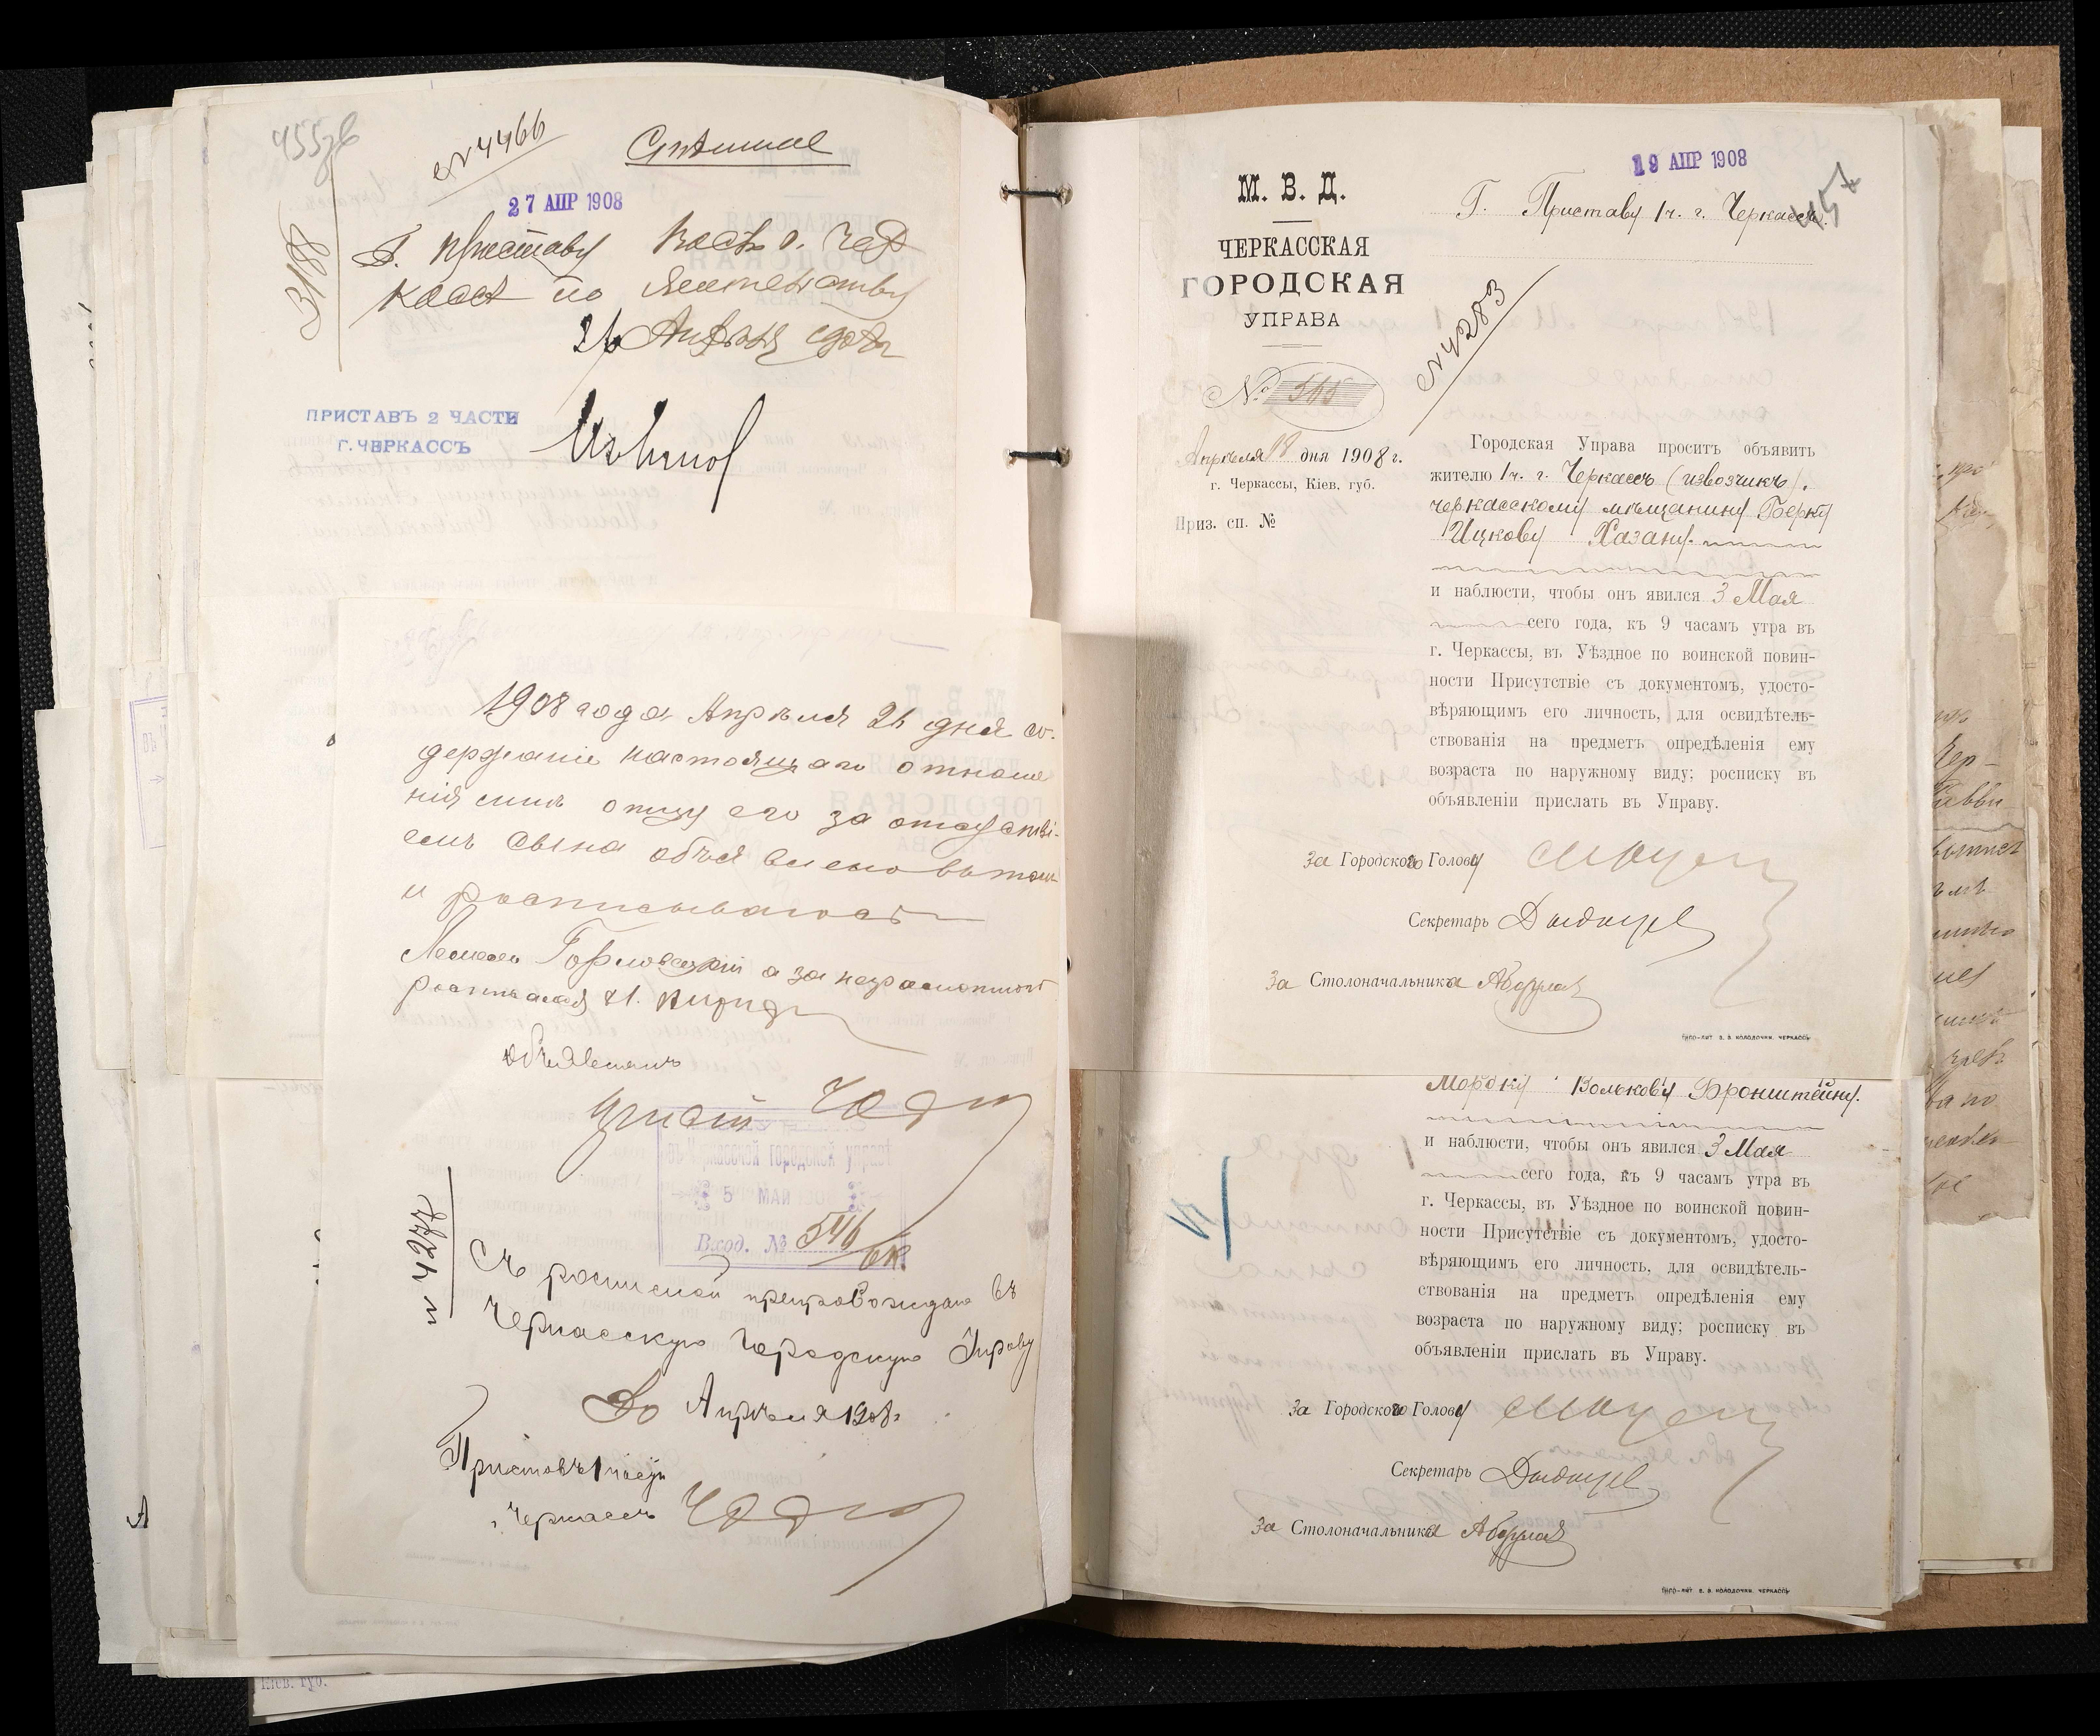 455 об
№ 4466
Спѣшное
27 АПР 1908
3188
Г. Приставу 1 части г. Чер
кассъ по жительству
26 Апрѣля 1908 г.
ПРИСТАВЪ 2 ЧАСТИ
Г. ЧЕРКАССЪ
1908 года Апрѣля 26 дня со-
держаніе настоящаго отноше
нія мнѣ отцу его за отсутстві-
емъ сына объявлено въ томъ
и росписываюсь
Горловскій а за неграмотног
росписался
Объявилъ
въ Черкасской городской управѣ
5 МАЙ 1908
Вход. № 546
№ 4277
Съ роспиской препровождаю въ
Черкасскую Городскую Управу
30 Апрѣля 1908 г.
Приставъ 1 части
г. Черкассъ
19 АПР 1908
457
М. В. Д.
ЧЕРКАССКАЯ
ГОРОДСКАЯ
УПРАВА
№ 565
Апрѣля 18 дня 1908 г.
г. Черкассы, Кіев. губ.
Приз. сп. №
Г. Приставу 1 ч. г. Черкассъ.
№ 4283
Городская Управа проситъ объявить
жителю 1 ч. г. Черкассъ (извозчикъ).
черкасскому мѣщанину Берку
Ицкову Хазану.
и наблюсти, чтобы онъ явился 3 Мая
сего года, къ 9 часамъ утра въ
г. Черкассы, въ Уѣздное по воинской повин-
ности Присутствіе съ документомъ, удосто-
вѣряющимъ его личность, для освидѣтель-
ствованія на предметъ опредѣленія ему
возраста по наружному виду; росписку въ
объявленіи прислать въ Управу.
За Городского Голову
Секретарь
За Столоначальника
ТИПО-ЛИТ. В. В. КОЛОДОЧКИ, ЧЕРКАССЫ
Мордку Волькову Бронштейну.
и наблюсти, чтобы онъ явился 3 Мая
сего года, къ 9 часамъ утра въ
г. Черкассы, въ Уѣздное по воинской повин-
ности Присутствіе съ документомъ, удосто-
вѣряющимъ его личность, для освидѣтель-
ствованія на предметъ опредѣленія ему
возраста по наружному виду; росписку въ
объявленіи прислать въ Управу.
За Городского Голову
Секретарь
За Столоначальника
ТИПО-ЛИТ. В. В. КОЛОДОЧКИ, ЧЕРКАССЫ
Кіев. губ.